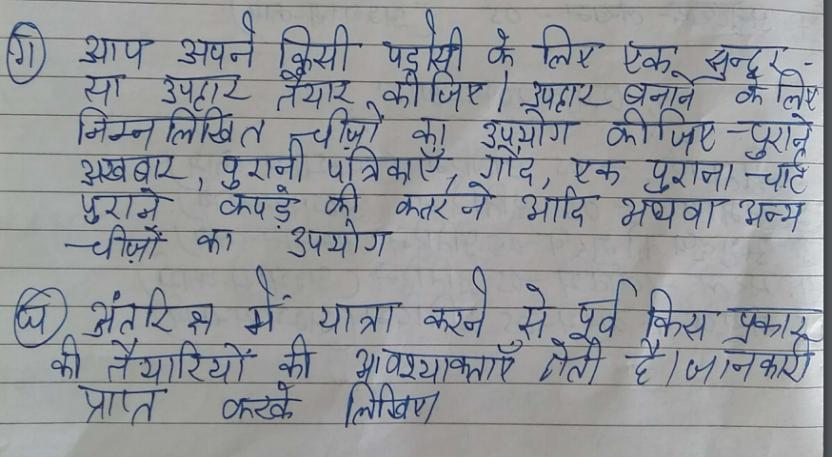 ग) आप अपने किसी पड़ोसी के लिए एक सुन्दर-
सा उपहार तैयार कीजिए। उपहार बनाने के लिए
निम्नलिखित चीज़ों का उपयोग कीजिए - पुराने
अखबार, पुरानी पत्रिकाएँ, गोंद, एक पुराना चार्ट
पुराने कपड़े की कतरने आदि अथवा अन्य
चीज़ों का उपयोग
घ) अंतरिक्ष में यात्रा करने से पूर्व किस प्रकार
की तैयारियों की आवश्याकताएँ होती है। जानकारी
प्राप्त करके लिखिए।